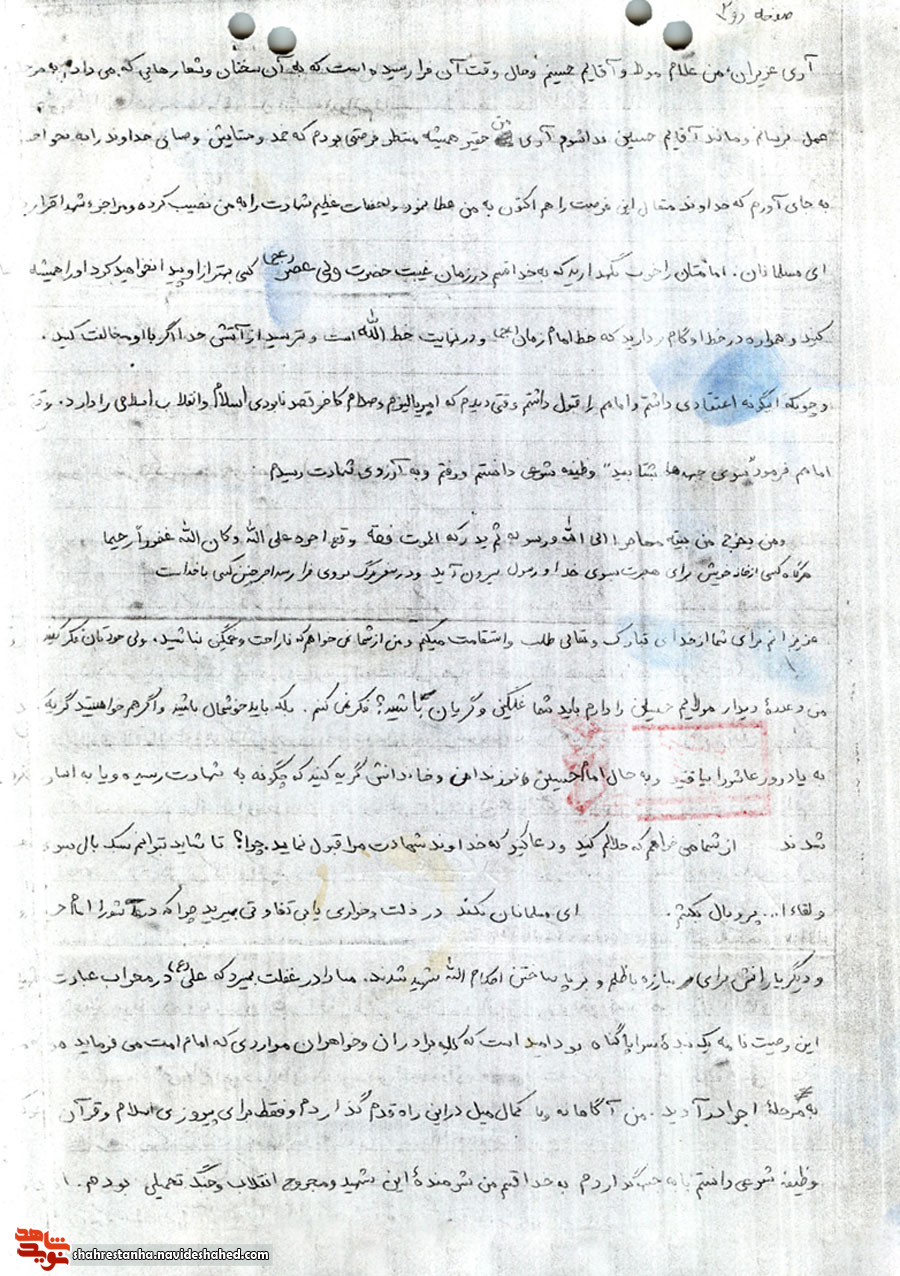 صفحه دوم
آری عزیزان، من غلام مولا و آقایم حسینم و حال وقت آن فرا رسیده است که به آن سخنان و شعارهایی که می دادم به
عمل برسانم و مانند آقایم حسین فدا شوم آری من حقیر همیشه منتظر فرصتی بودم که حمد و ستایش خداوند را به نحو
به جای آورم که خداوند متعال این فرصت را هم اکنون به من عطا نمود و لحظات عظیم شهادت را به من نصیب کرده و مرا جزء شهدا قرار
ای مسلمانان. امامتان را خوب نگهدارید که به خدا قسم در زمان غیبت حضرت ولی عصر (عج) کسی بهتر از او پیدا نخواهید کرد او را همیشه
کنید و همواره در خط او گام بردارید که خط امام زمان (عج) و در نهایت خط الله است و بترسید از آتش خدا اگر با او مخالفت کنید.
و چونکه اینگونه اعتقادی داشتم و امامم را قبول داشتم وقتی دیدم که امپریالیزم و صدام کافر قصد نابودی اسلام و انقلاب اسلامی را دارد. وقتی
امامم فرمود "بسوی جبهه ها بشتابید" وظیفه شرعی دانستم و رفتم و به آرزوی شهادت رسیدم
ومن یخرج من بیته مهاجرا الی الله و رسوله ثم یدرکه الموت فقد وقع اجره علی الله وکان الله غفوراً رحیما
هرگاه کسی از خانه خویش برای هجرت بسوی خدا و رسول بیرون آید و در سفر مرگ بر وی فرا رسد اجر چنین کسی با خداست
عزیزانم برای شما از خدای تبارک و تعالی طلب استقامت میکنم و من از شما می خواهم که ناراحت و غمگین نباشید. ولی خودتان فکر کنید
من وعدهٔ دیدار مولایم حسین را دارم باید شما غمگین و گریان باشید؟ فکر نمی کنم. بلکه باید خوشحال باشید و اگر هم خواستید گریه
به یاد روز عاشورا بیافتید و به حال امام حسین و فرزندان و خاندانش گریه کنید که چگونه به شهادت رسیده و یا به اسارت
شدند از شما می خواهم که حلالم کنید و دعا کنید که خداوند شهادت مرا قبول نماید. چرا؟ تا شاید بتوانم سبک بال سوی
و لقاء ا... پر و بال بکشم. ای مسلمانان نکند در ذلت و خواری یا بی تفاوتی بمیرید چرا که در عاشورا امام
و دیگر یارانش برای مبارزه با ظلم و برپا ساختن احکام الله شهید شدند. مبادا در غفلت بمیرید که علی (ع) در محراب عبادت
این وصیت نامه یک بندهٔ سراپا گناه بود امید است که کلیه برادران و خواهران مواردی که امام امت می فرماید
به مرحلهٔ اجرا درآورید. من آگاهانه و با کمال میل در این راه قدم گذاردم و فقط برای پیروزی اسلام و قرآن
وظیفه شرعی دانستم پا به جبهه گذاردم به خدا قسم من شرمندهٔ این شهید و مجروح انقلاب و جنگ تحمیلی بودم.
نوید شاهد
shahrestanha.navideshahed.com